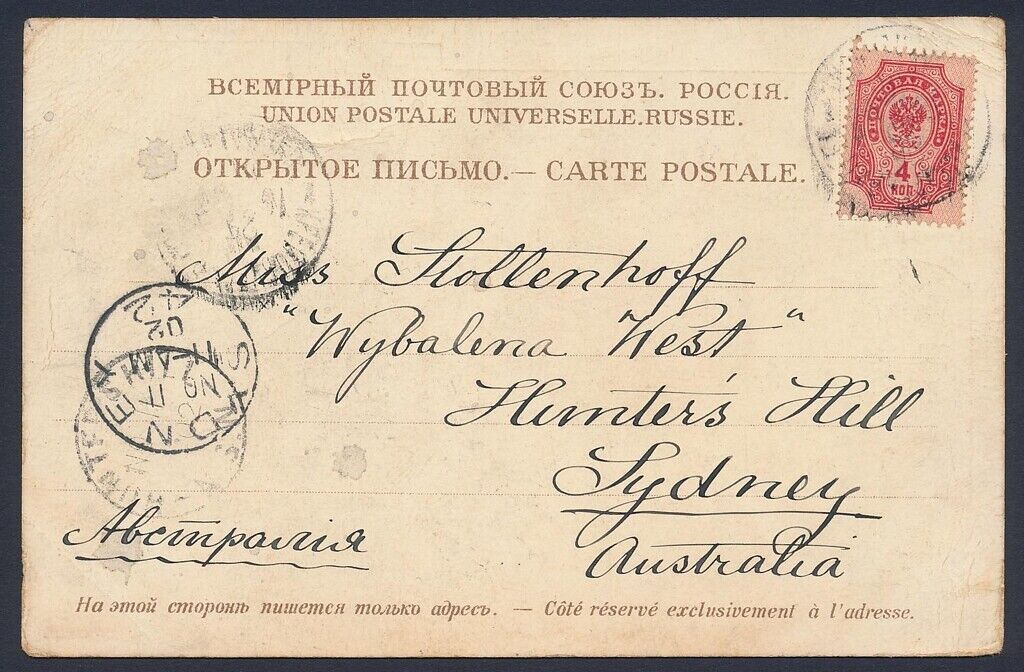 ВСЕМІРНЫЙ ПОЧТОВЫЙ СОЮЗЪ. РОССІЯ.
UNION POSTALE UNIVERSELLE.RUSSIE.
ОТКРЫТОЕ ПИСЬМО.— CARTE POSTALE.
ПОЧТОВАЯ МАРКА
4
КОП.
Miss Stollenhoff
"Wybalena West"
Hunter's Hill
Sydney
Australia
Австралія
SYDNEY
NO 11
11 AM
02
На этой сторонѣ пишется только адресъ. — Côté réservé exclusivement à l'adresse.